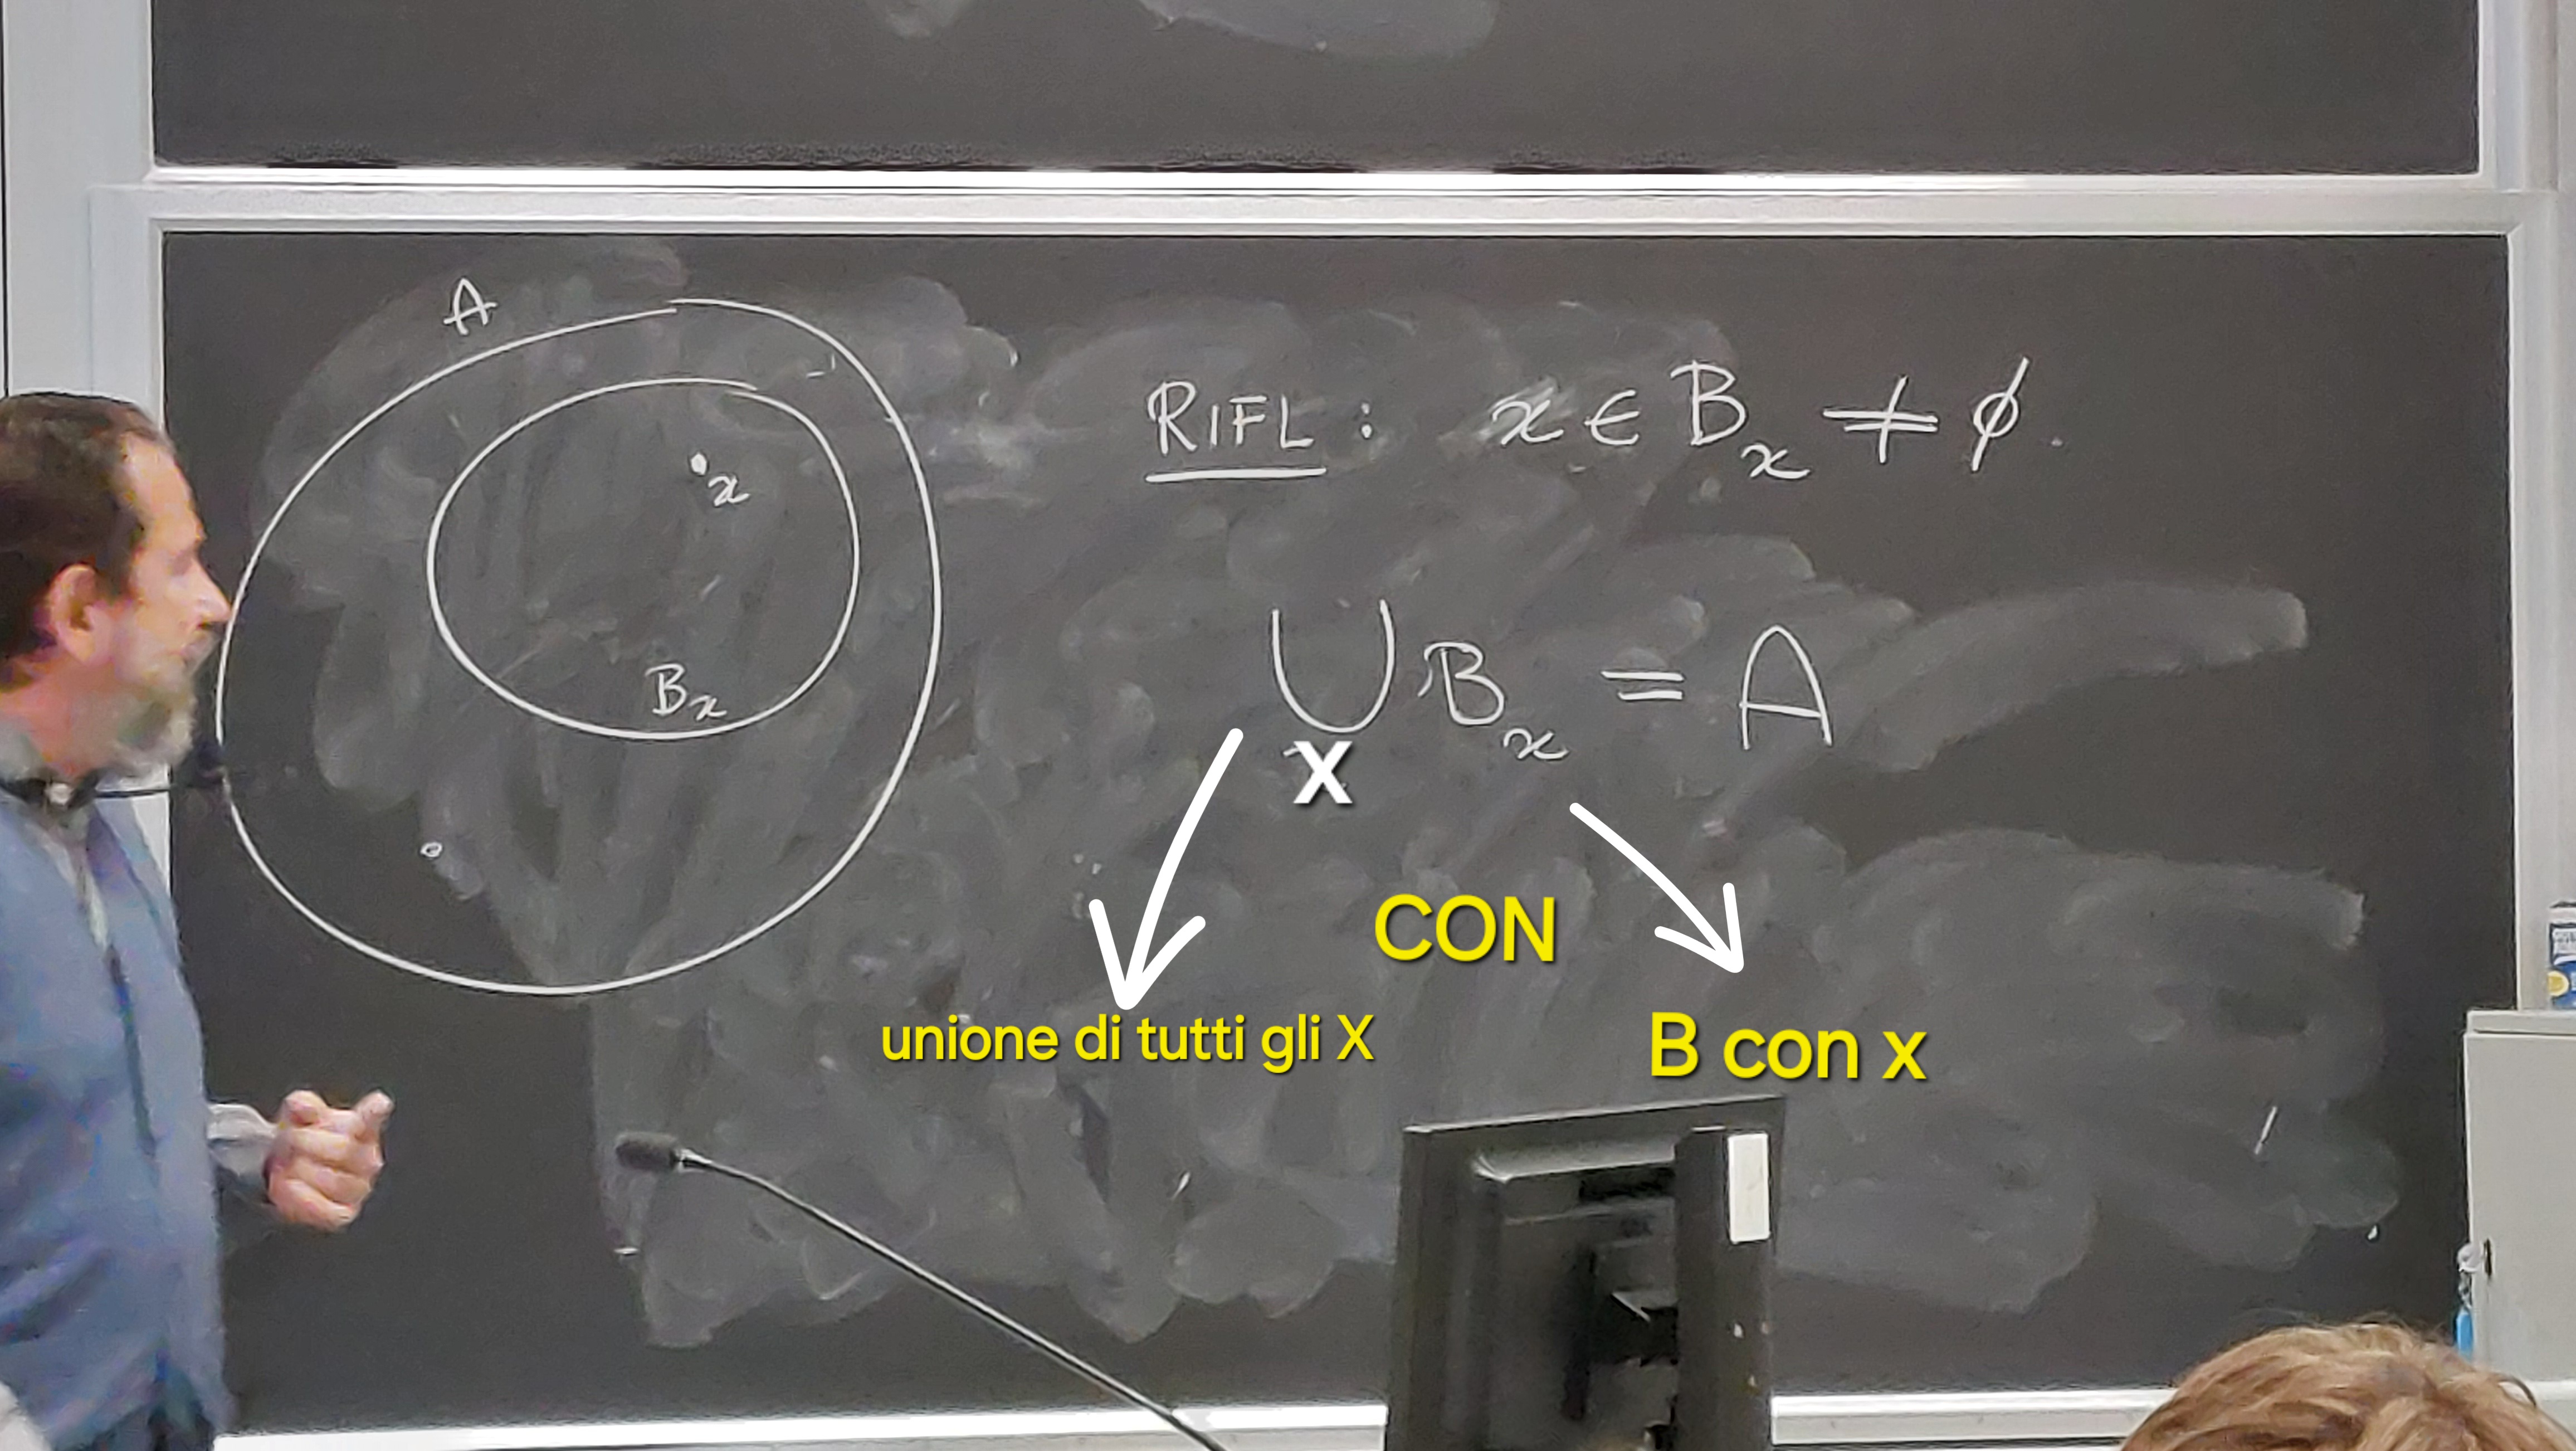 A
x
B_x
RIFL : x ∈ B_x ≠ ∅.
⋃ B_x = A
X
CON
unione di tutti gli X
B con x